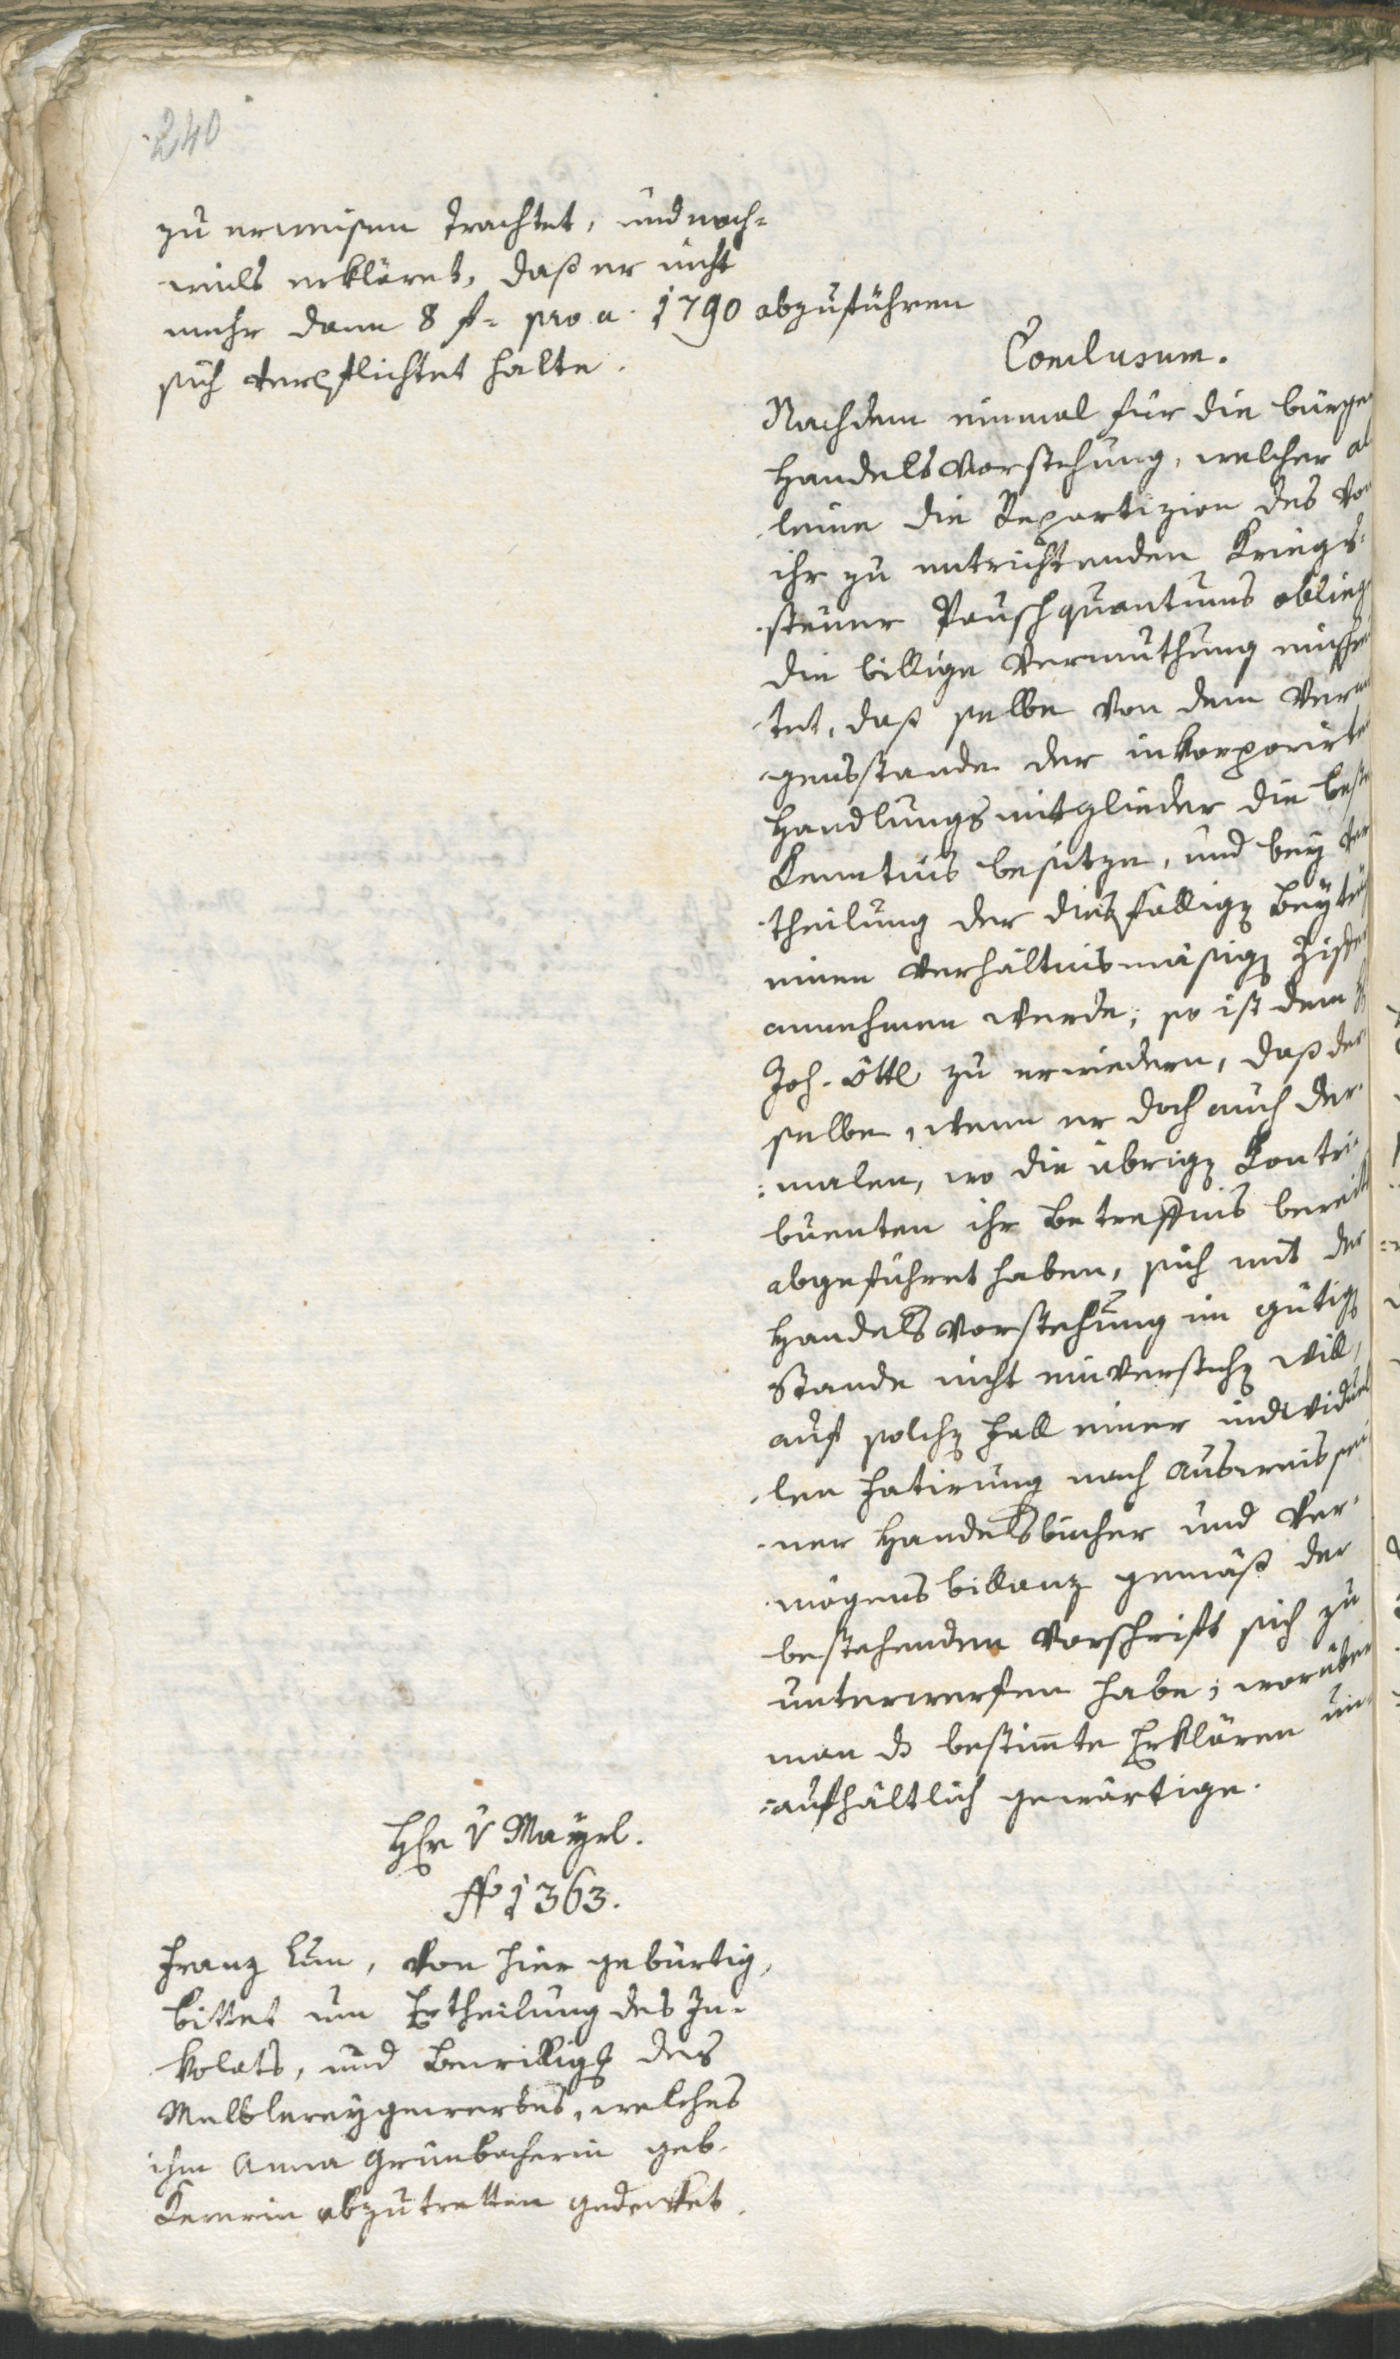 240
zu erweisen trachtet, und noch-
mals erkläret, daß er nicht
mehr dann 8 f= pro a. 1790 abzuführen
sich verpflichtet halte.
Conclusum.
Nachdem einmal für die bürge
Handelsvorstehung, welcher al
leine die Repartizion des vo
ihr zu entrichtenden Kriegs-
steuer Pauschquantums oblieg
die billige Vermuthung
tet, daß selbe von dem Verm
gensstande der inkorporirte
Handlungsmitglieder die beste
Kenntnis besitze, und bey ver
theilung der diesfällig Beyträg
einen verhältnismäsig Ziffer
annehmen werde; so ist dem H
Joh. Öttl zu erwiedern, daß der
selbe, wenn er doch auch der-
=malen, wo die übrig Contri-
buenten ihr Betreffnis bereits
abgeführet haben, sich mit der
Handelsvorstehung im gütig
Stande nicht einversteh will,
auf solch Fall einer individuel
len Fatirung nach Ausweis sei
ner Handelsbücher und Ver-
mögensbillanz gemäß der
bestehenden Vorschrift sich zu
unterwerfen habe; worüber
man d bestimte Erklären un
=aufhältlich gewärtige.
Hr v Mayrl.
N 1363.
Franz Lun, von hier gebürtig,
bittet um Ertheilung des In-
kolats, und Bewillig des
Melblereygewerbes, welches
ihm Anna Grünbacherin geb.
abzutretten gedenket.